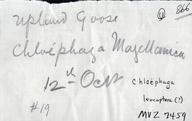 866
Upland Goose
Chloëphaga Magellanica
12th Oct
Chloëphaga
leucoptera (?)
#19
MVZ 7459